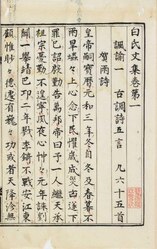 白氏文集卷第一
諷諭一 古調詩五言 凡六十五首
賀雨詩
皇帝嗣寶曆元和三年冬自冬及春暮不
雨旱爞爞上心念下民懼歲成災凶遂下
罪己詔殷勤告萬邦帝曰予一人繼天承
祖宗憂勤不遑寧夙夜心忡忡元年誅劉
闢一舉靖巴邛二年戮李錡不戰安江東
顧惟眇眇德遽有巍巍功或者天降沴無